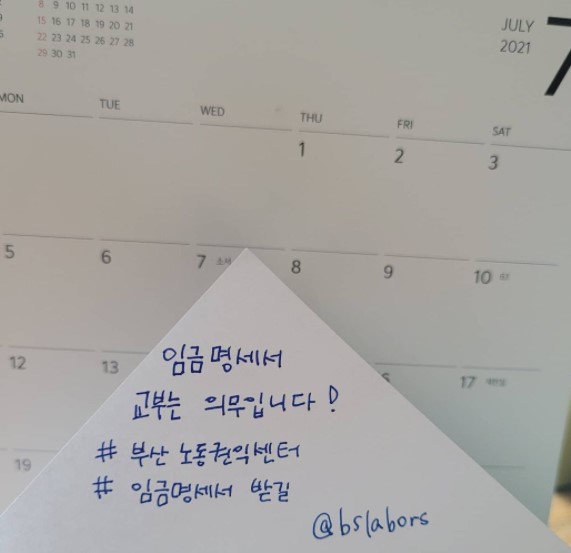 8 9 10 11 12 13 14
15 16 17 18 19 20 21
22 23 24 25 26 27 28
29 30 31
JULY
2021
7
MON TUE WED THU FRI SAT
1 2 3
5 6 7 소서 8 9 10
12 13 17 제헌절
19
임금명세서
교부는 의무입니다!
# 부산 노동권익센터
# 임금명세서 받길
@bslabors